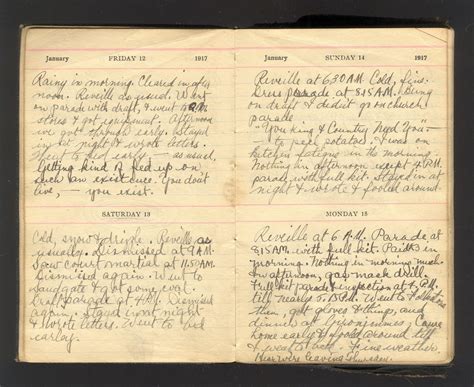 January FRIDAY 12 1917
Rainy in morning. Cleared in after
noon. Reveille as usual. Went
on parade with draft, & went to
stores & got equipment. Afternoon
we got through early. Stayed
in at night & wrote letters.
Went to bed early — as usual,
Getting kind of fed up on
such an existence. You don't
live, — you exist.
SATURDAY 13
Cold, snow & drizzle. Reveille as
usual. Dismissed at 9 A.M.
Saw court martial at 11.50 A.M.
Dismissed again. Went to
Sandgate & got some coal.
Dress parade at 4 P.M. Dismissed
again. Stayed in at night
& wrote letters. Went to bed
early.
January SUNDAY 14 1917
Reveille at 6.30 A.M. Cold, fine.
Dress parade at 8.45 A.M. being
on draft & didn't go on church
parade.
"You King & Country Need You" —
to peel potatoes. I was on
kitchen fatigue in the morning
Nothing in afternoon except 4 P.M.
parade, with full kit. Stayed in at
night & wrote & fooled around.
MONDAY 15
Reveille at 6 A.M. Parade at
8.45 A.M. with full kit. in
morning. Nothing in morning much
In afternoon, gas mask drill.
Full kit parade & inspection at 4 P.M.
till nearly 5 P.M. Went to Folkstone
then, got gloves & things, and
dinner at Came
home early & fooled around till
I went to bed. Fine weather.
Hear we're leaving